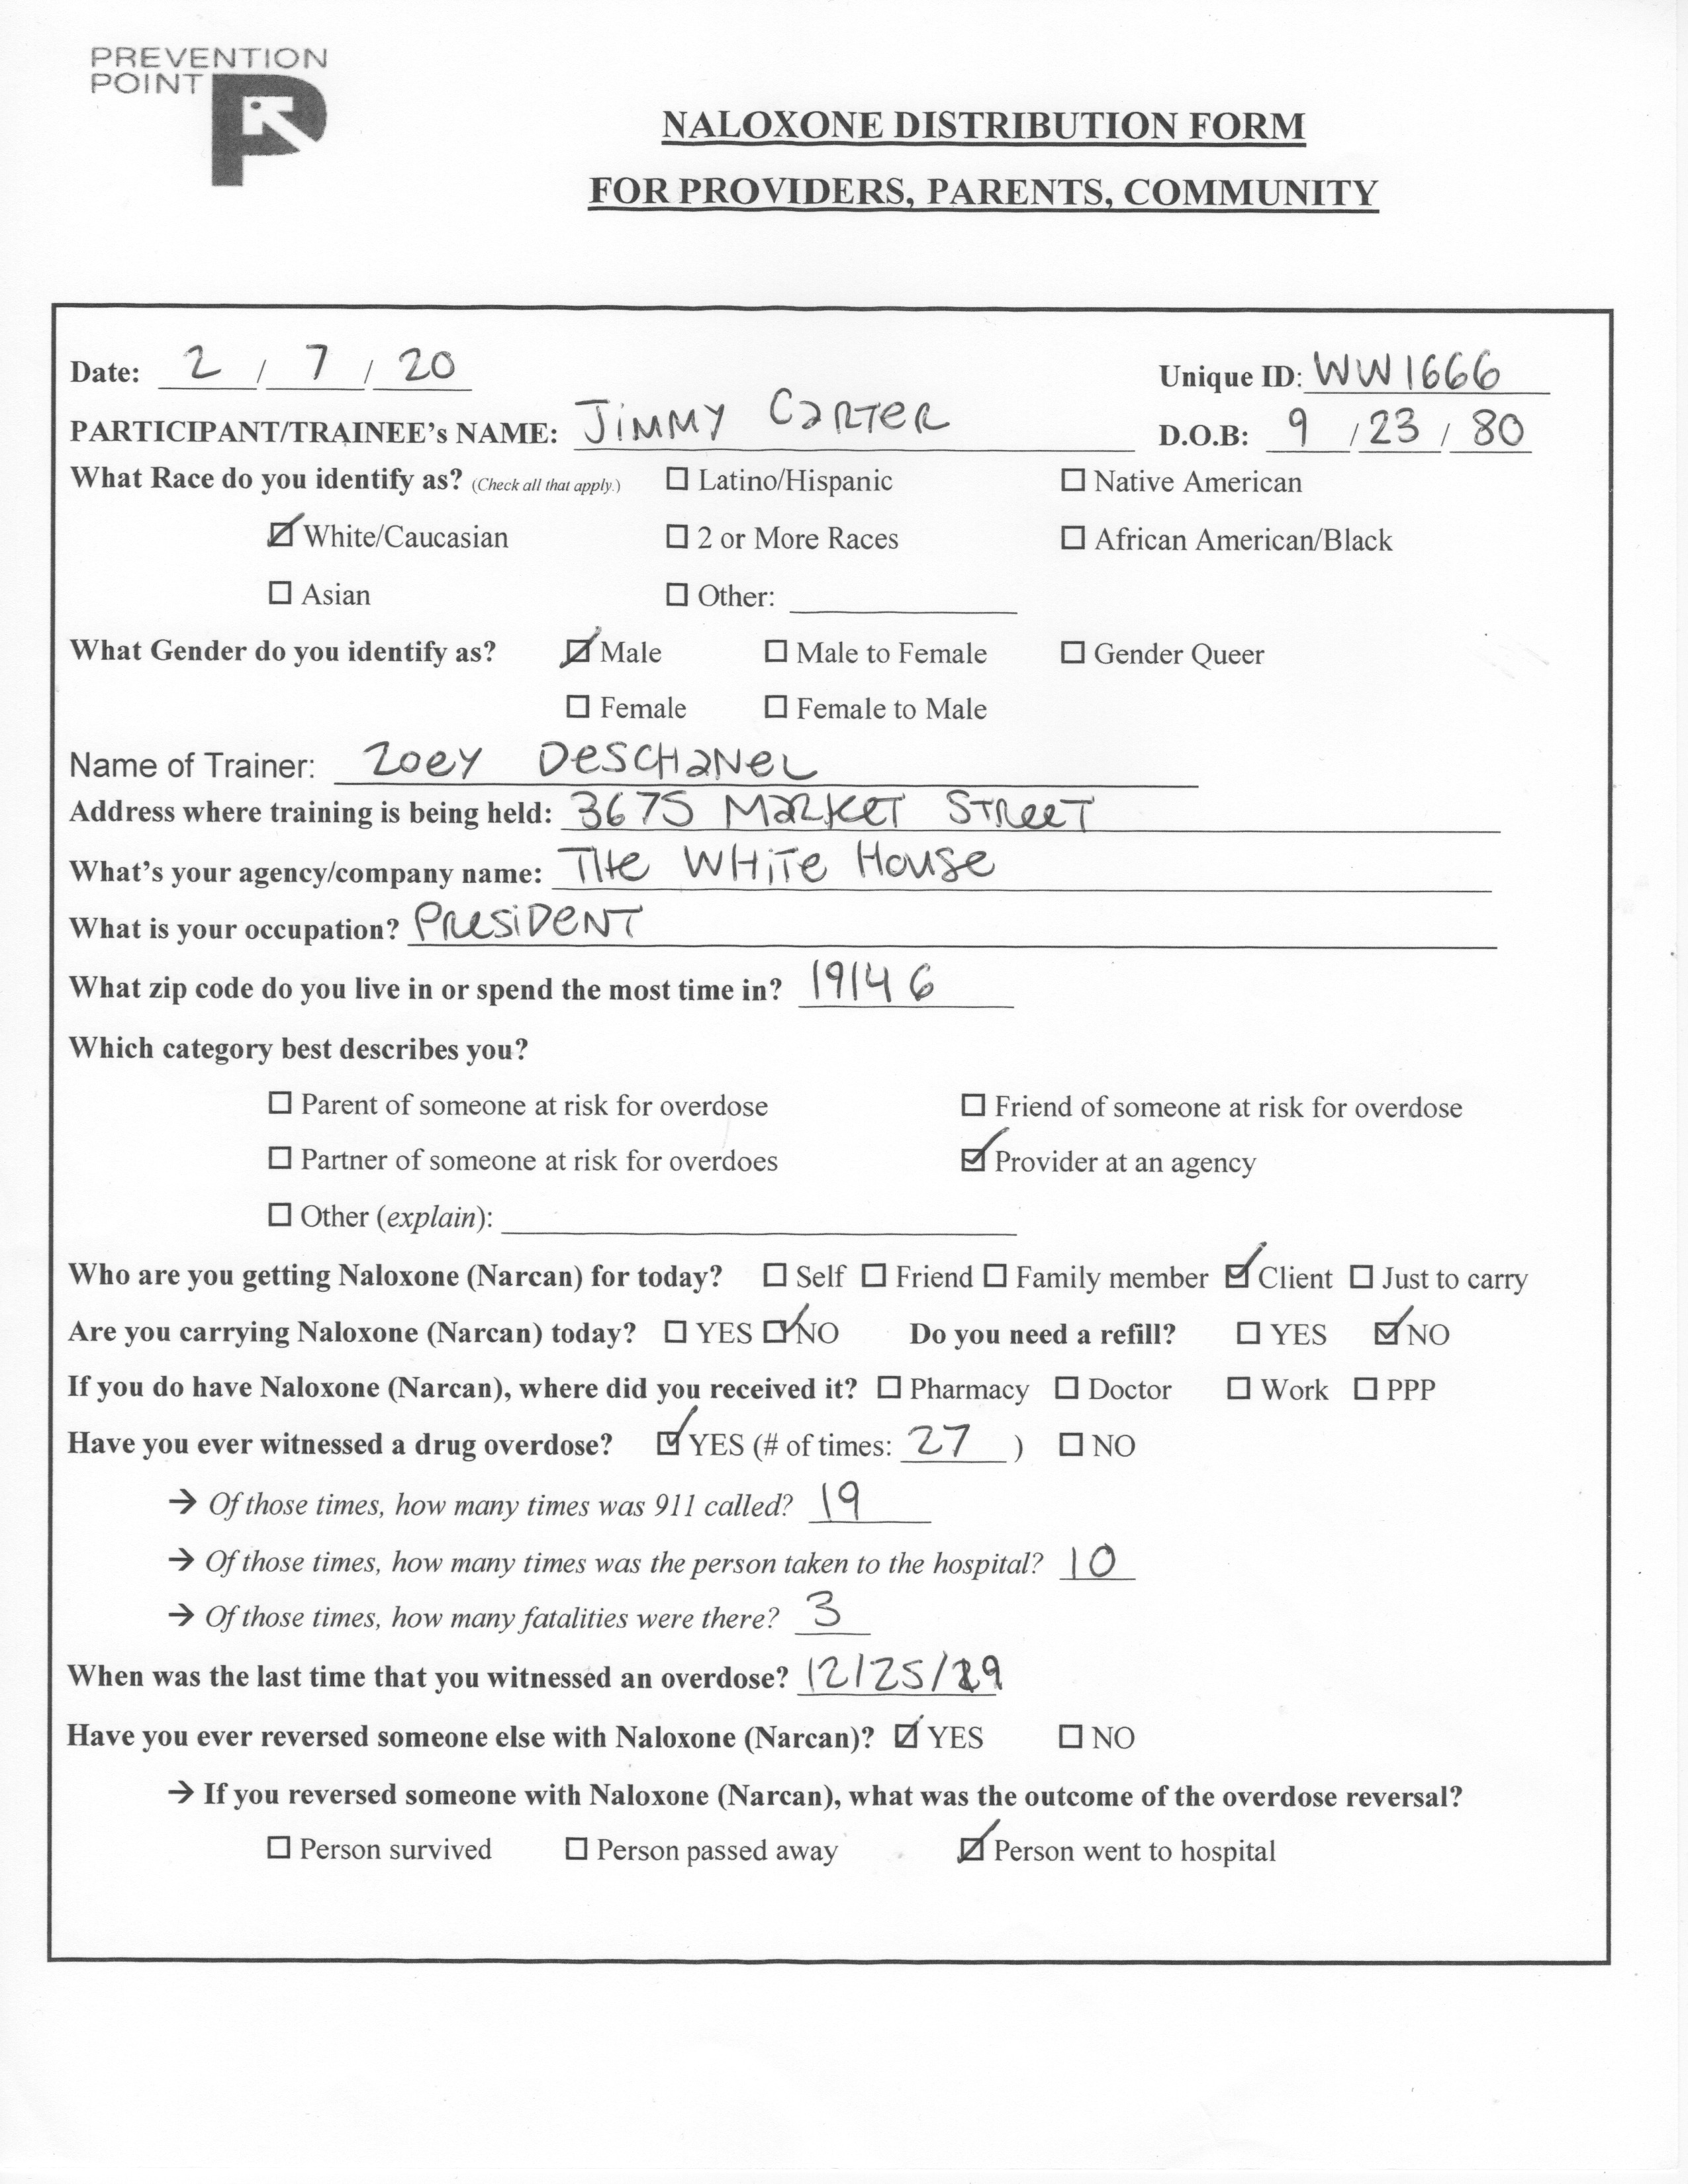 PREVENTION
POINT
NALOXONE DISTRIBUTION FORM
FOR PROVIDERS, PARENTS, COMMUNITY
Date: 2 / 7 / 20 Unique ID: WW1666
PARTICIPANT/TRAINEE's NAME: JiMMY CARTeR D.O.B: 9 / 23 / 80
What Race do you identify as? (Check all that apply.) ☐ Latino/Hispanic ☐ Native American
☑ White/Caucasian ☐ 2 or More Races ☐ African American/Black
☐ Asian ☐ Other:
What Gender do you identify as? ☑ Male ☐ Male to Female ☐ Gender Queer
☐ Female ☐ Female to Male
Name of Trainer: Zoey DeSCHaNeL
Address where training is being held: 3675 MaRKeT STReeT
What's your agency/company name: THe WHiTe HouSe
What is your occupation? PReSiDeNT
What zip code do you live in or spend the most time in? 19146
Which category best describes you?
☐ Parent of someone at risk for overdose ☐ Friend of someone at risk for overdose
☐ Partner of someone at risk for overdoes ☑ Provider at an agency
☐ Other (explain):
Who are you getting Naloxone (Narcan) for today? ☐ Self ☐ Friend ☐ Family member ☑ Client ☐ Just to carry
Are you carrying Naloxone (Narcan) today? ☐ YES ☑ NO Do you need a refill? ☐ YES ☑ NO
If you do have Naloxone (Narcan), where did you received it? ☐ Pharmacy ☐ Doctor ☐ Work ☐ PPP
Have you ever witnessed a drug overdose? ☑ YES (# of times: 27 ) ☐ NO
→ Of those times, how many times was 911 called? 19
→ Of those times, how many times was the person taken to the hospital? 10
→ Of those times, how many fatalities were there? 3
When was the last time that you witnessed an overdose? 12/25/19
Have you ever reversed someone else with Naloxone (Narcan)? ☑ YES ☐ NO
→ If you reversed someone with Naloxone (Narcan), what was the outcome of the overdose reversal?
☐ Person survived ☐ Person passed away ☑ Person went to hospital